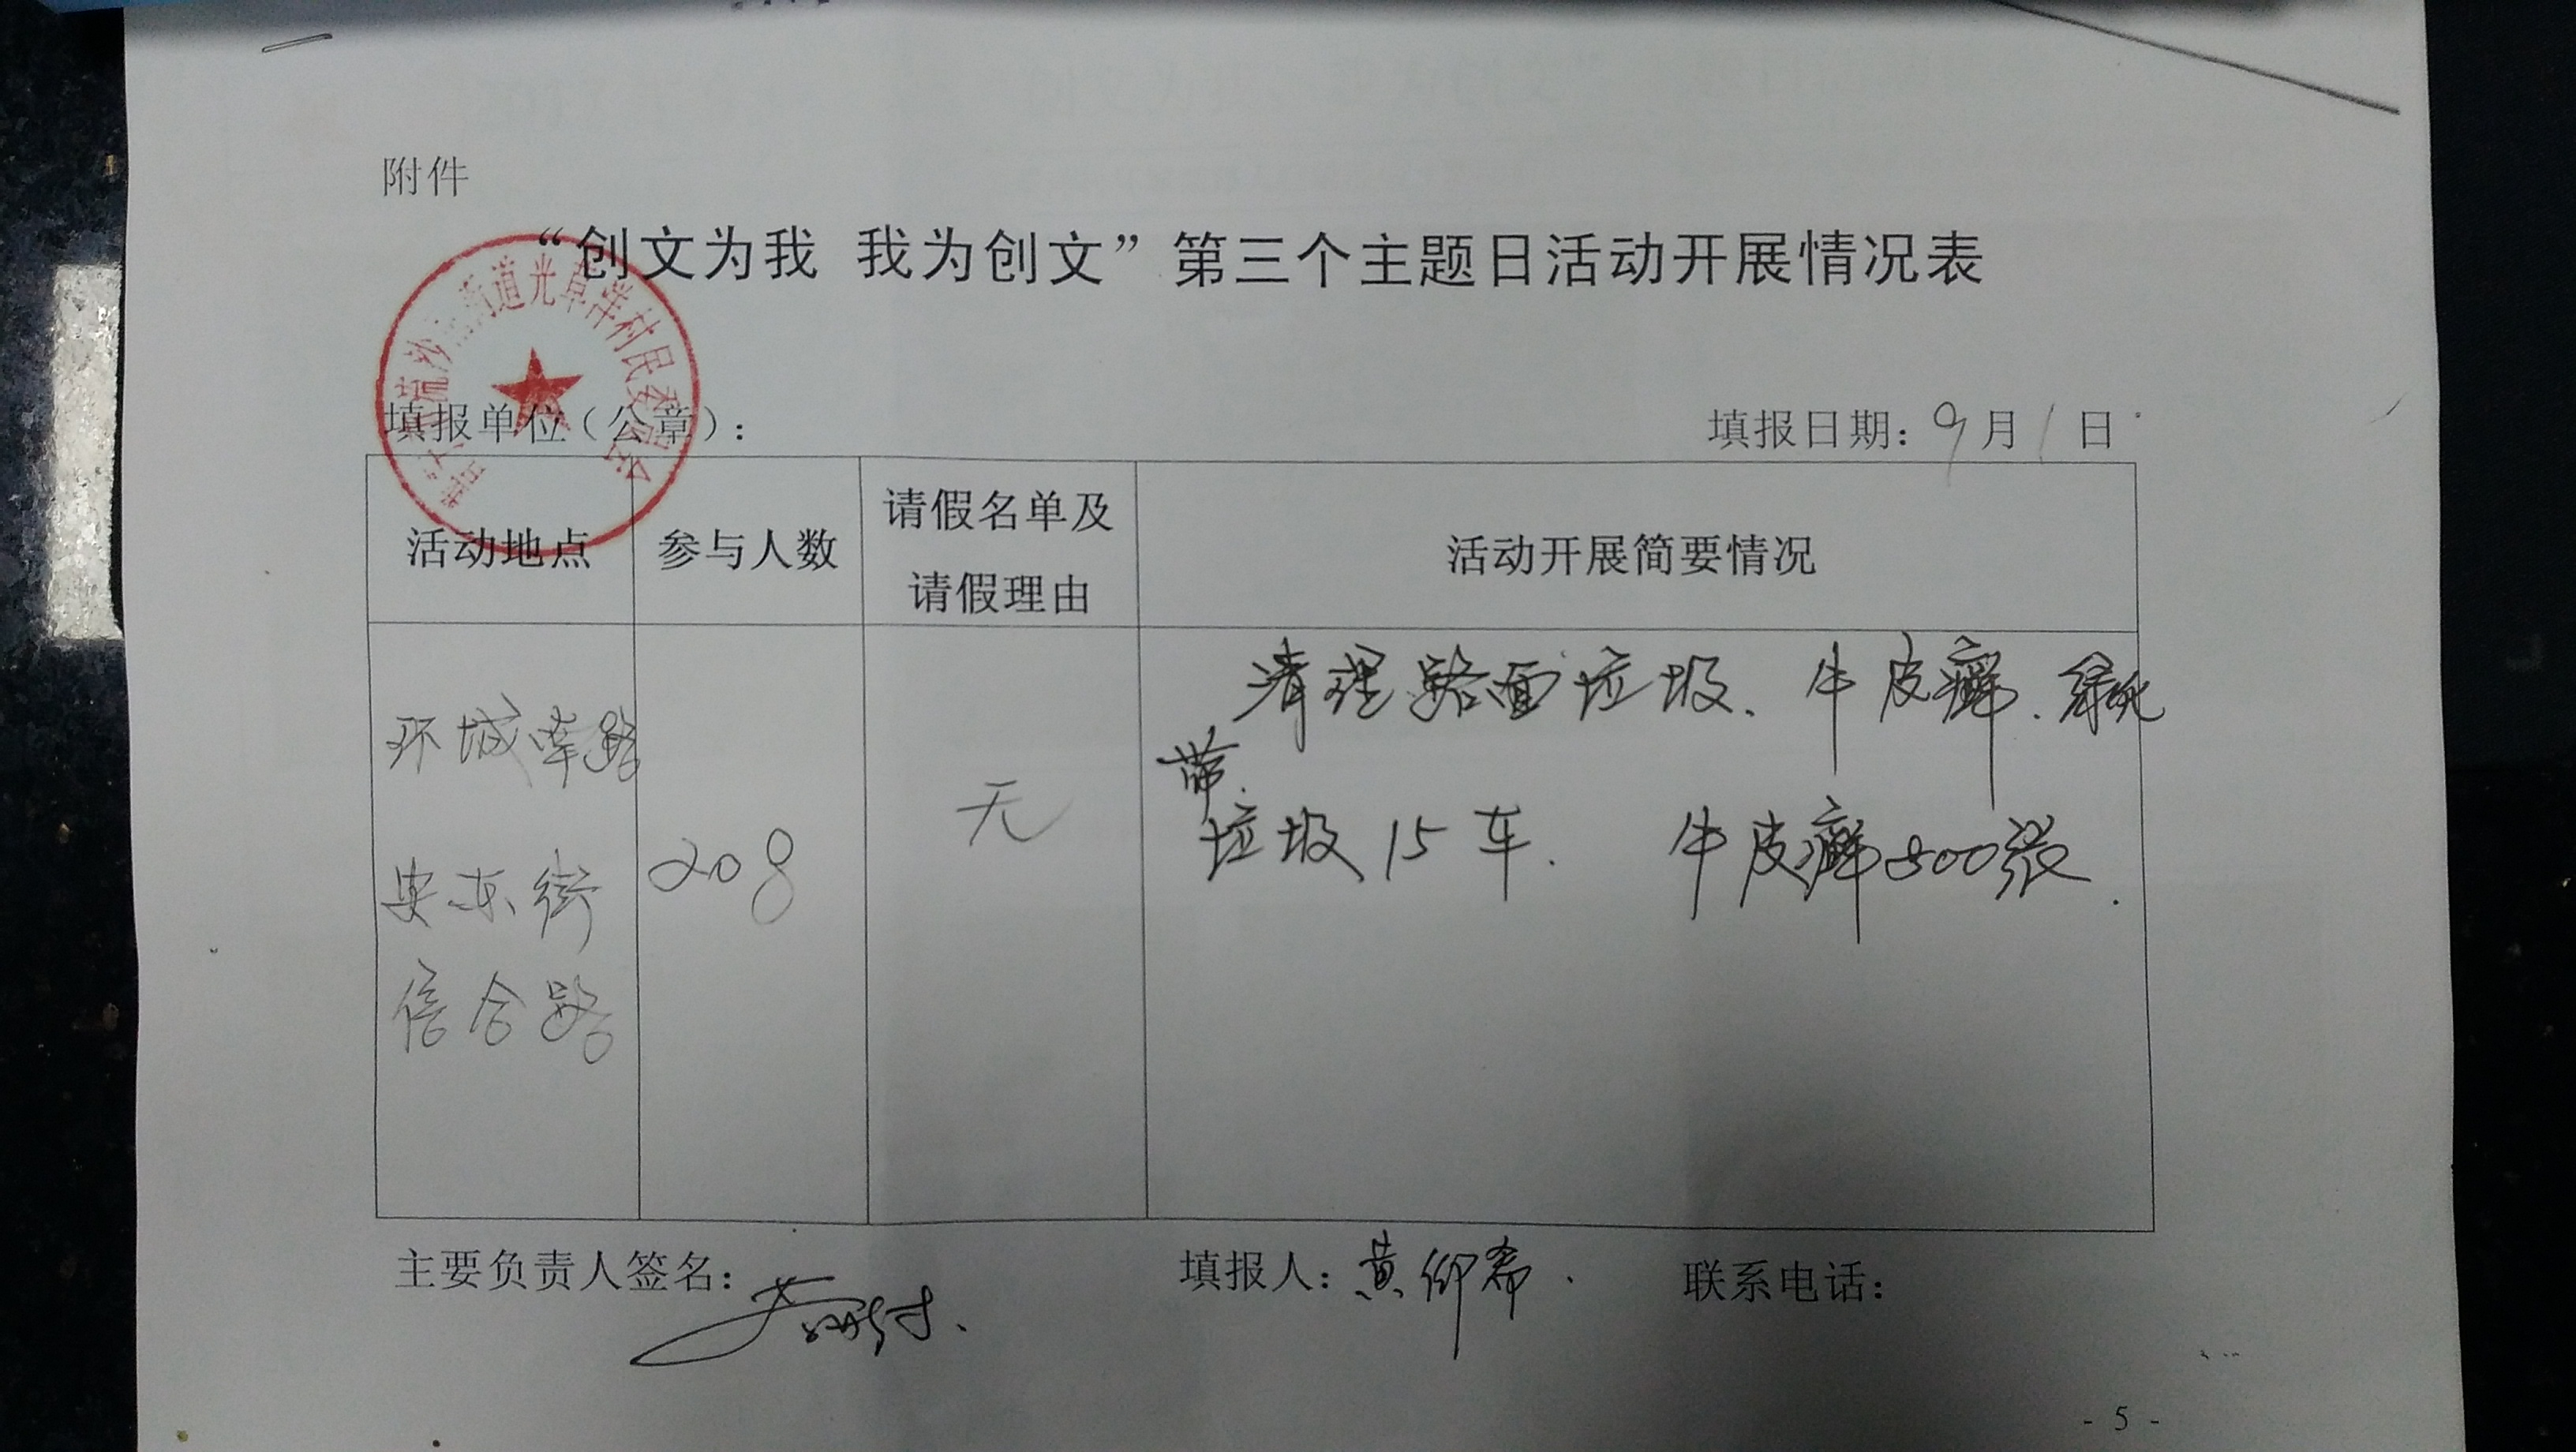 附件
“创文为我 我为创文”第三个主题日活动开展情况表
街道光草洋村民委员会
填报单位（公章）：
填报日期：9月1日
活动地点
参与人数
请假名单及
请假理由
活动开展简要情况
环城南路
安东街
信合路
208
无
清理路面垃圾、牛皮癣、绿化
带.
垃圾15车. 牛皮癣500张.
主要负责人签名：
填报人：黄仰希.
联系电话：
- 5 -